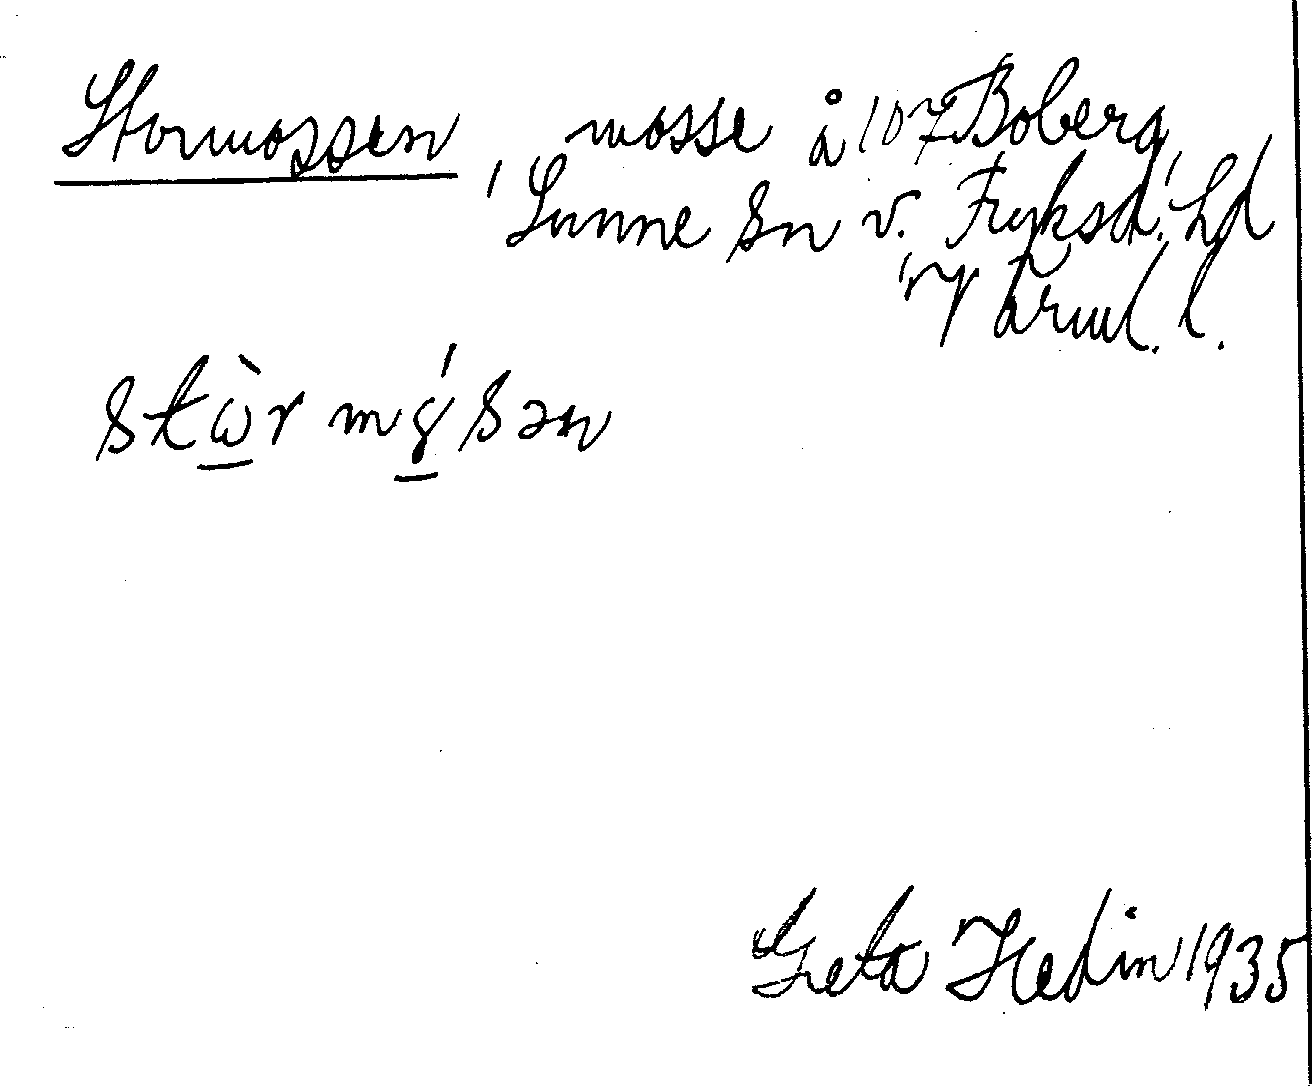 Stormossen, mosse å 107 Boberg,
Sunne sn v. Fryksd. hd
Värml. l.
stὼr mɣ́sən
Greta Hedin 1935